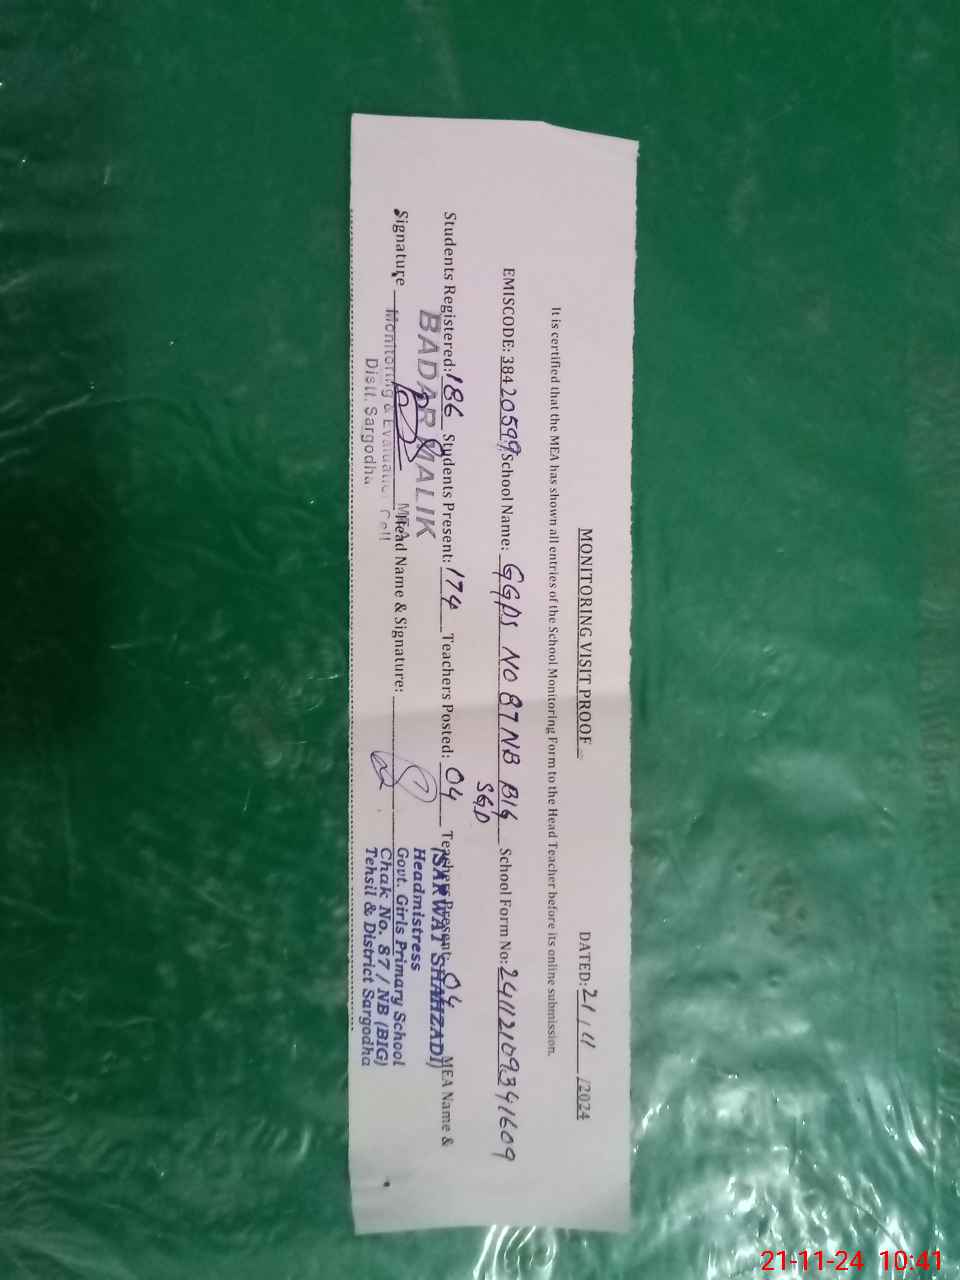 MONITORING VISIT PROOF
DATED: 21/11/2024
It is certified that the MEA has shown all entries of the School Monitoring Form to the Head Teacher before its online submission.
EMISCODE: 38420599 School Name: GGPS NO 87NB BIG SGD School Form No: 24112109341609
Students Registered: 186 Students Present: 174 Teachers Posted: 04 Teachers Present: 04 MEA Name &
Signature Head Name & Signature:
BADAR MALIK
MEA
Monitoring & Evaluation Cell
Distt. Sargodha
(SARWAT SHAHZADI)
Headmistress
Govt. Girls Primary School
Chak No. 87 / NB (BIG)
Tehsil & District Sargodha
21-11-24 10:41